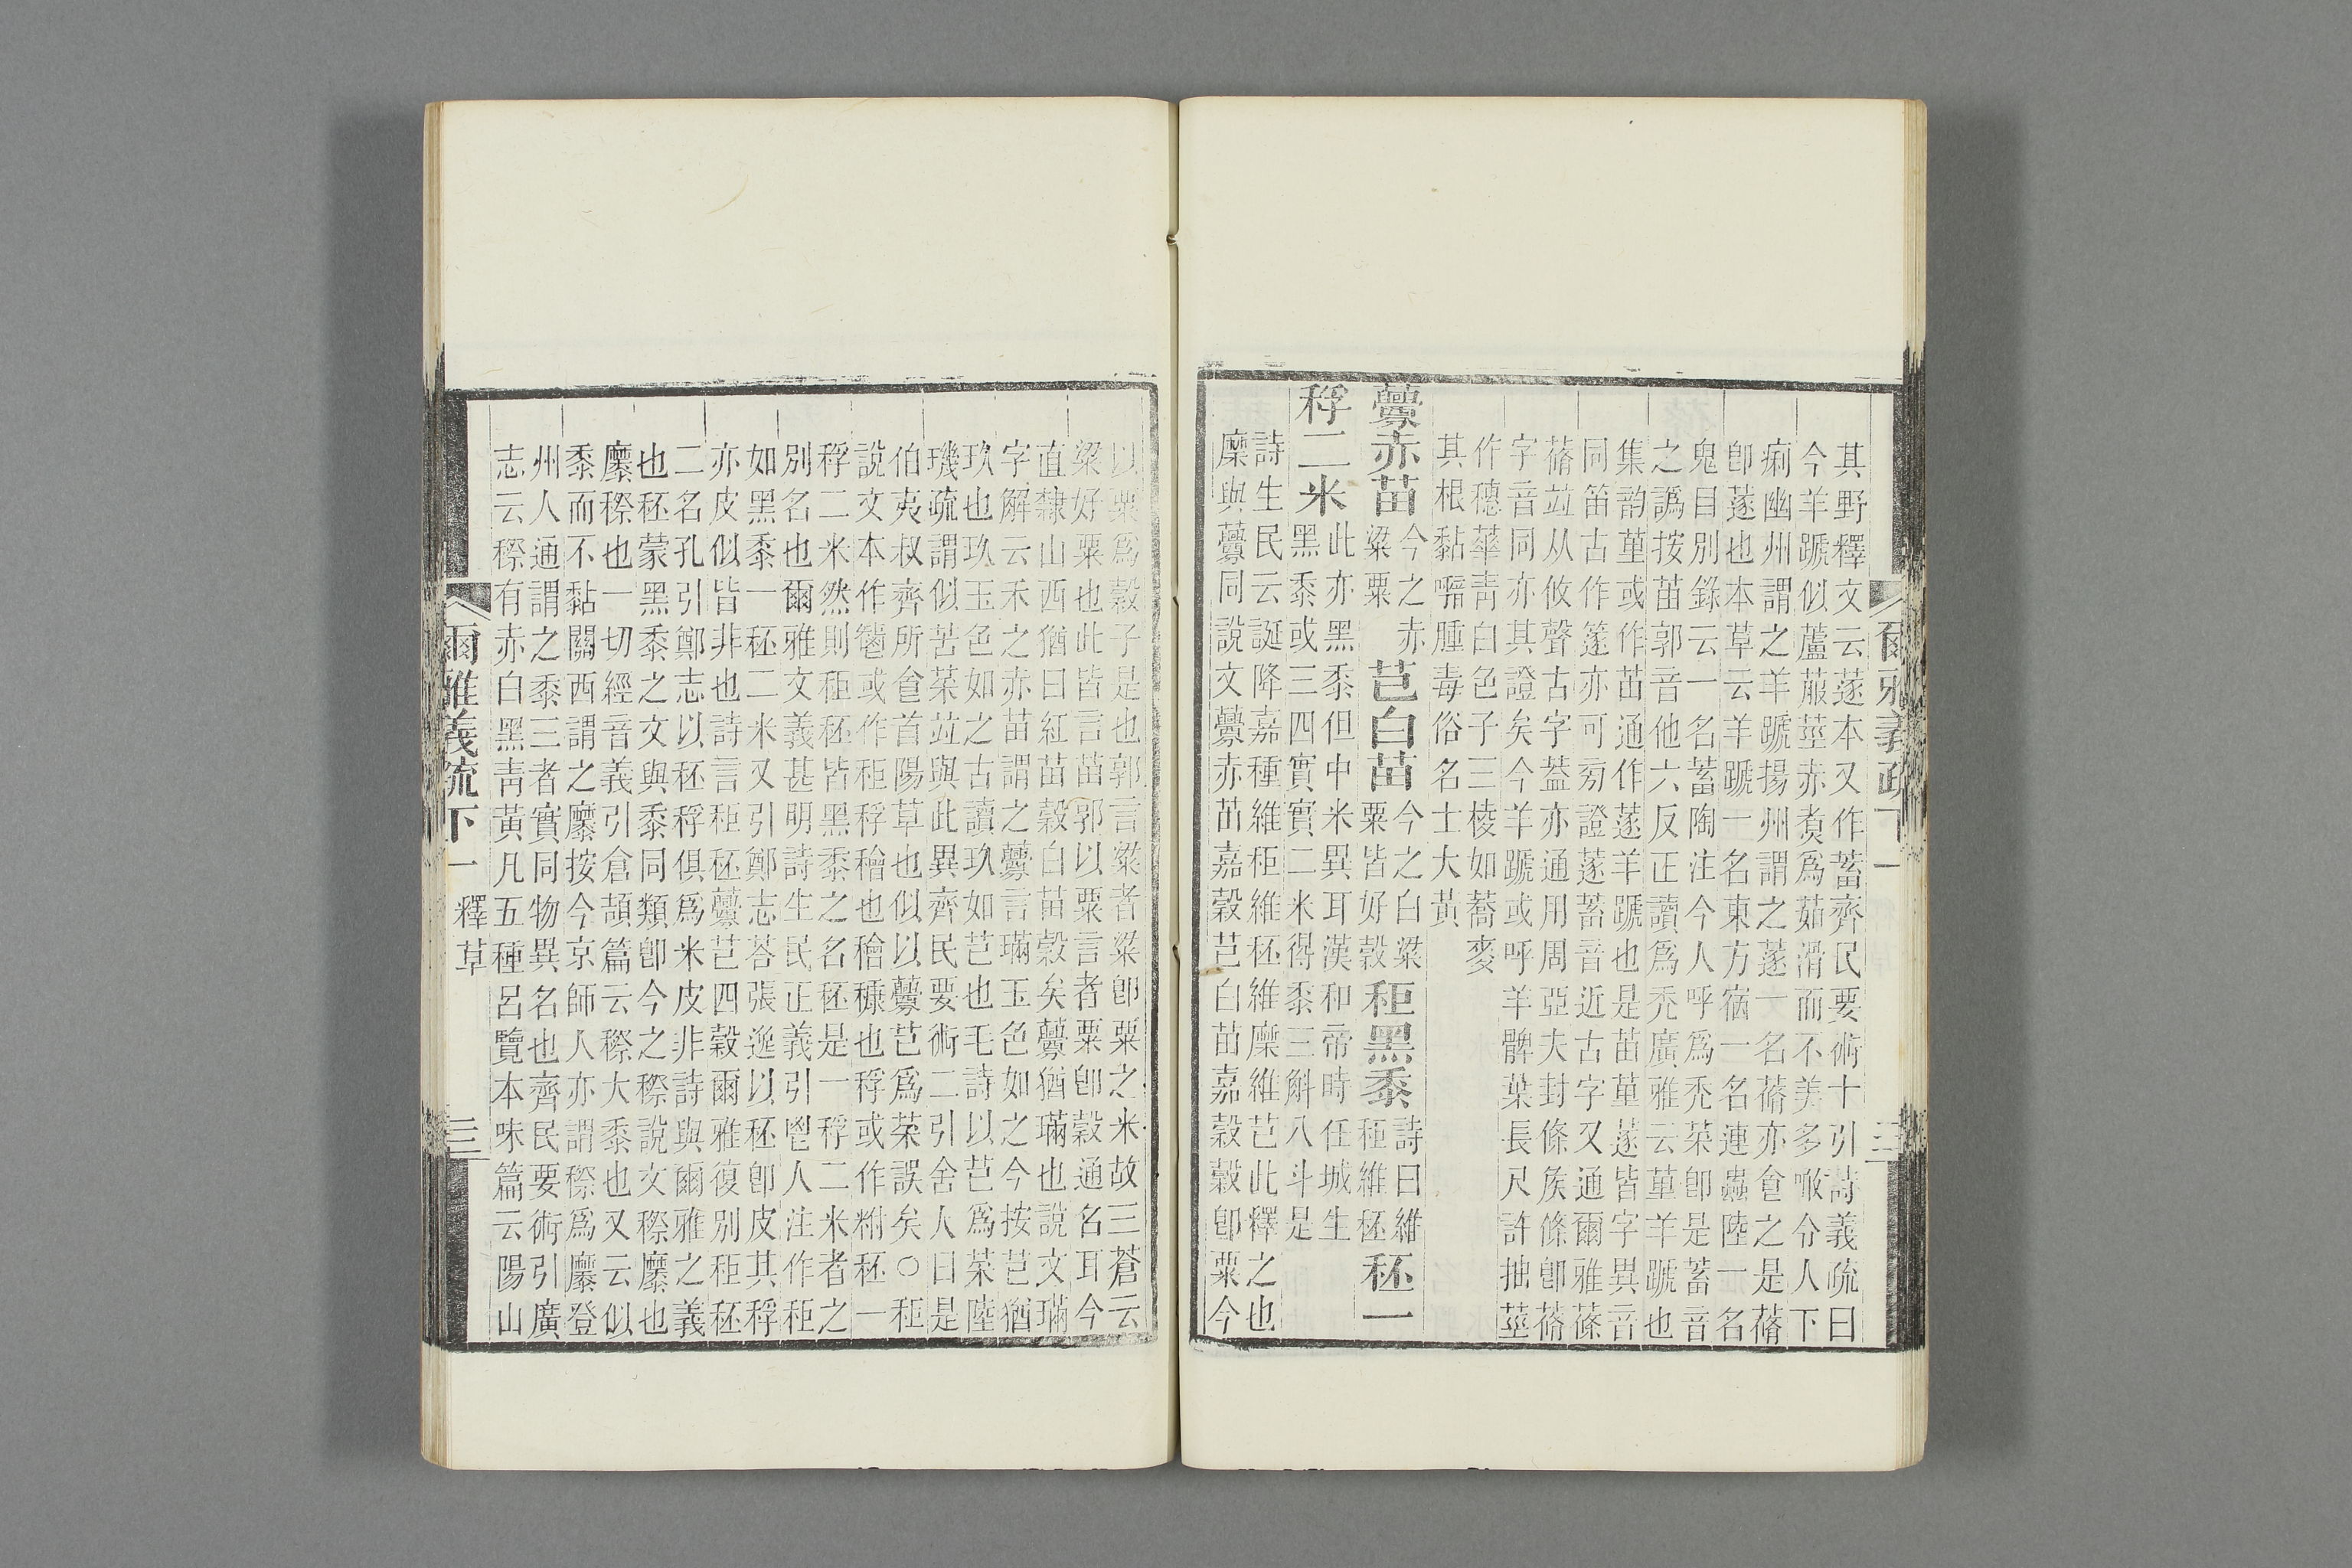 爾雅義疏下一
三
其野釋文云蓫本又作蓄齊民要術十引詩義疏曰
今羊蹏似蘆菔莖赤煑爲茹滑而不美多噉令人下
痢幽州謂之羊蹏揚州謂之蓫一名蓨亦食之是蓨
卽蓫也本草云羊蹏一名東方宿一名連蟲陸一名
鬼目別錄云一名蓄陶注今人呼爲禿菜卽是蓄音
之譌按苗郭音他六反正讀爲禿廣雅云菫羊蹏也
集韵菫或作苖通作蓫羊蹏也是苗菫蓫皆字異音
同笛古作篴亦可㫄證蓫蓄音近古字又通爾雅蓧
蓨竝从攸聲古字葢亦通用周亞夫封條矦條卽蓨
字音同亦其證矣今羊蹏或呼羊髀葉長尺許拙莖
作穗華靑白色子三棱如蕎麥
其根黏腫毒俗名土大黃
虋赤苗今之赤粱粟芑白苗今之白粱粟皆好穀秬黑黍詩曰維秬維秠秠一
稃二米此亦黑黍但中米異耳漢和帝時任城生黑黍或三四實實二米得黍三斛八斗是
詩生民云誕降嘉種維秬維秠維穈維芑此釋之也
穈與虋同說文虋赤苗嘉穀芑白苗嘉穀穀卽粟今
以粟爲穀子是也郭言粱者粱卽粟之米故三蒼云
粱好粟也此皆言苗郭以粟言者粟卽穀通名耳今
直隸山西猶曰紅苗穀白苗穀矣虋猶璊也說文璊
字解云禾之赤苗謂之虋言璊玉色如之今按芑猶
玖也玖玉色如之古讀玖如芑也毛詩以芑爲菜陸
璣疏謂似苦菜竝與此異齊民要術二引舍人曰是
伯夷叔齊所食首陽草也似以虋芑爲菜誤矣○秬
說文本作𩰪或作秬稃穭也穭穅也稃或作粰秠一
稃二米然則秬秠皆黑黍之名秠是一稃二米者之
別名也爾雅文義甚明詩生民正義引鬯人注作秬
如黑黍一秠二米又引鄭志荅張逸以秠卽皮其稃
亦皮似皆非也詩言秬秠虋芑四穀爾雅復別秬秠
二名孔引鄭志以秠稃俱爲米皮非詩與爾雅之義
也秠蒙黑黍之文與黍同類卽今之穄說文穄穈也
穈穄也一切經音義引倉頡篇云穄大黍也又云似
黍而不黏關西謂之穈按今京師人亦謂穄爲穈登
州人通謂之黍三者實同物異名也齊民要術引廣
志云穄有赤白黑靑黃凡五種呂覽本味篇云陽山
爾雅義疏下一
釋草
三